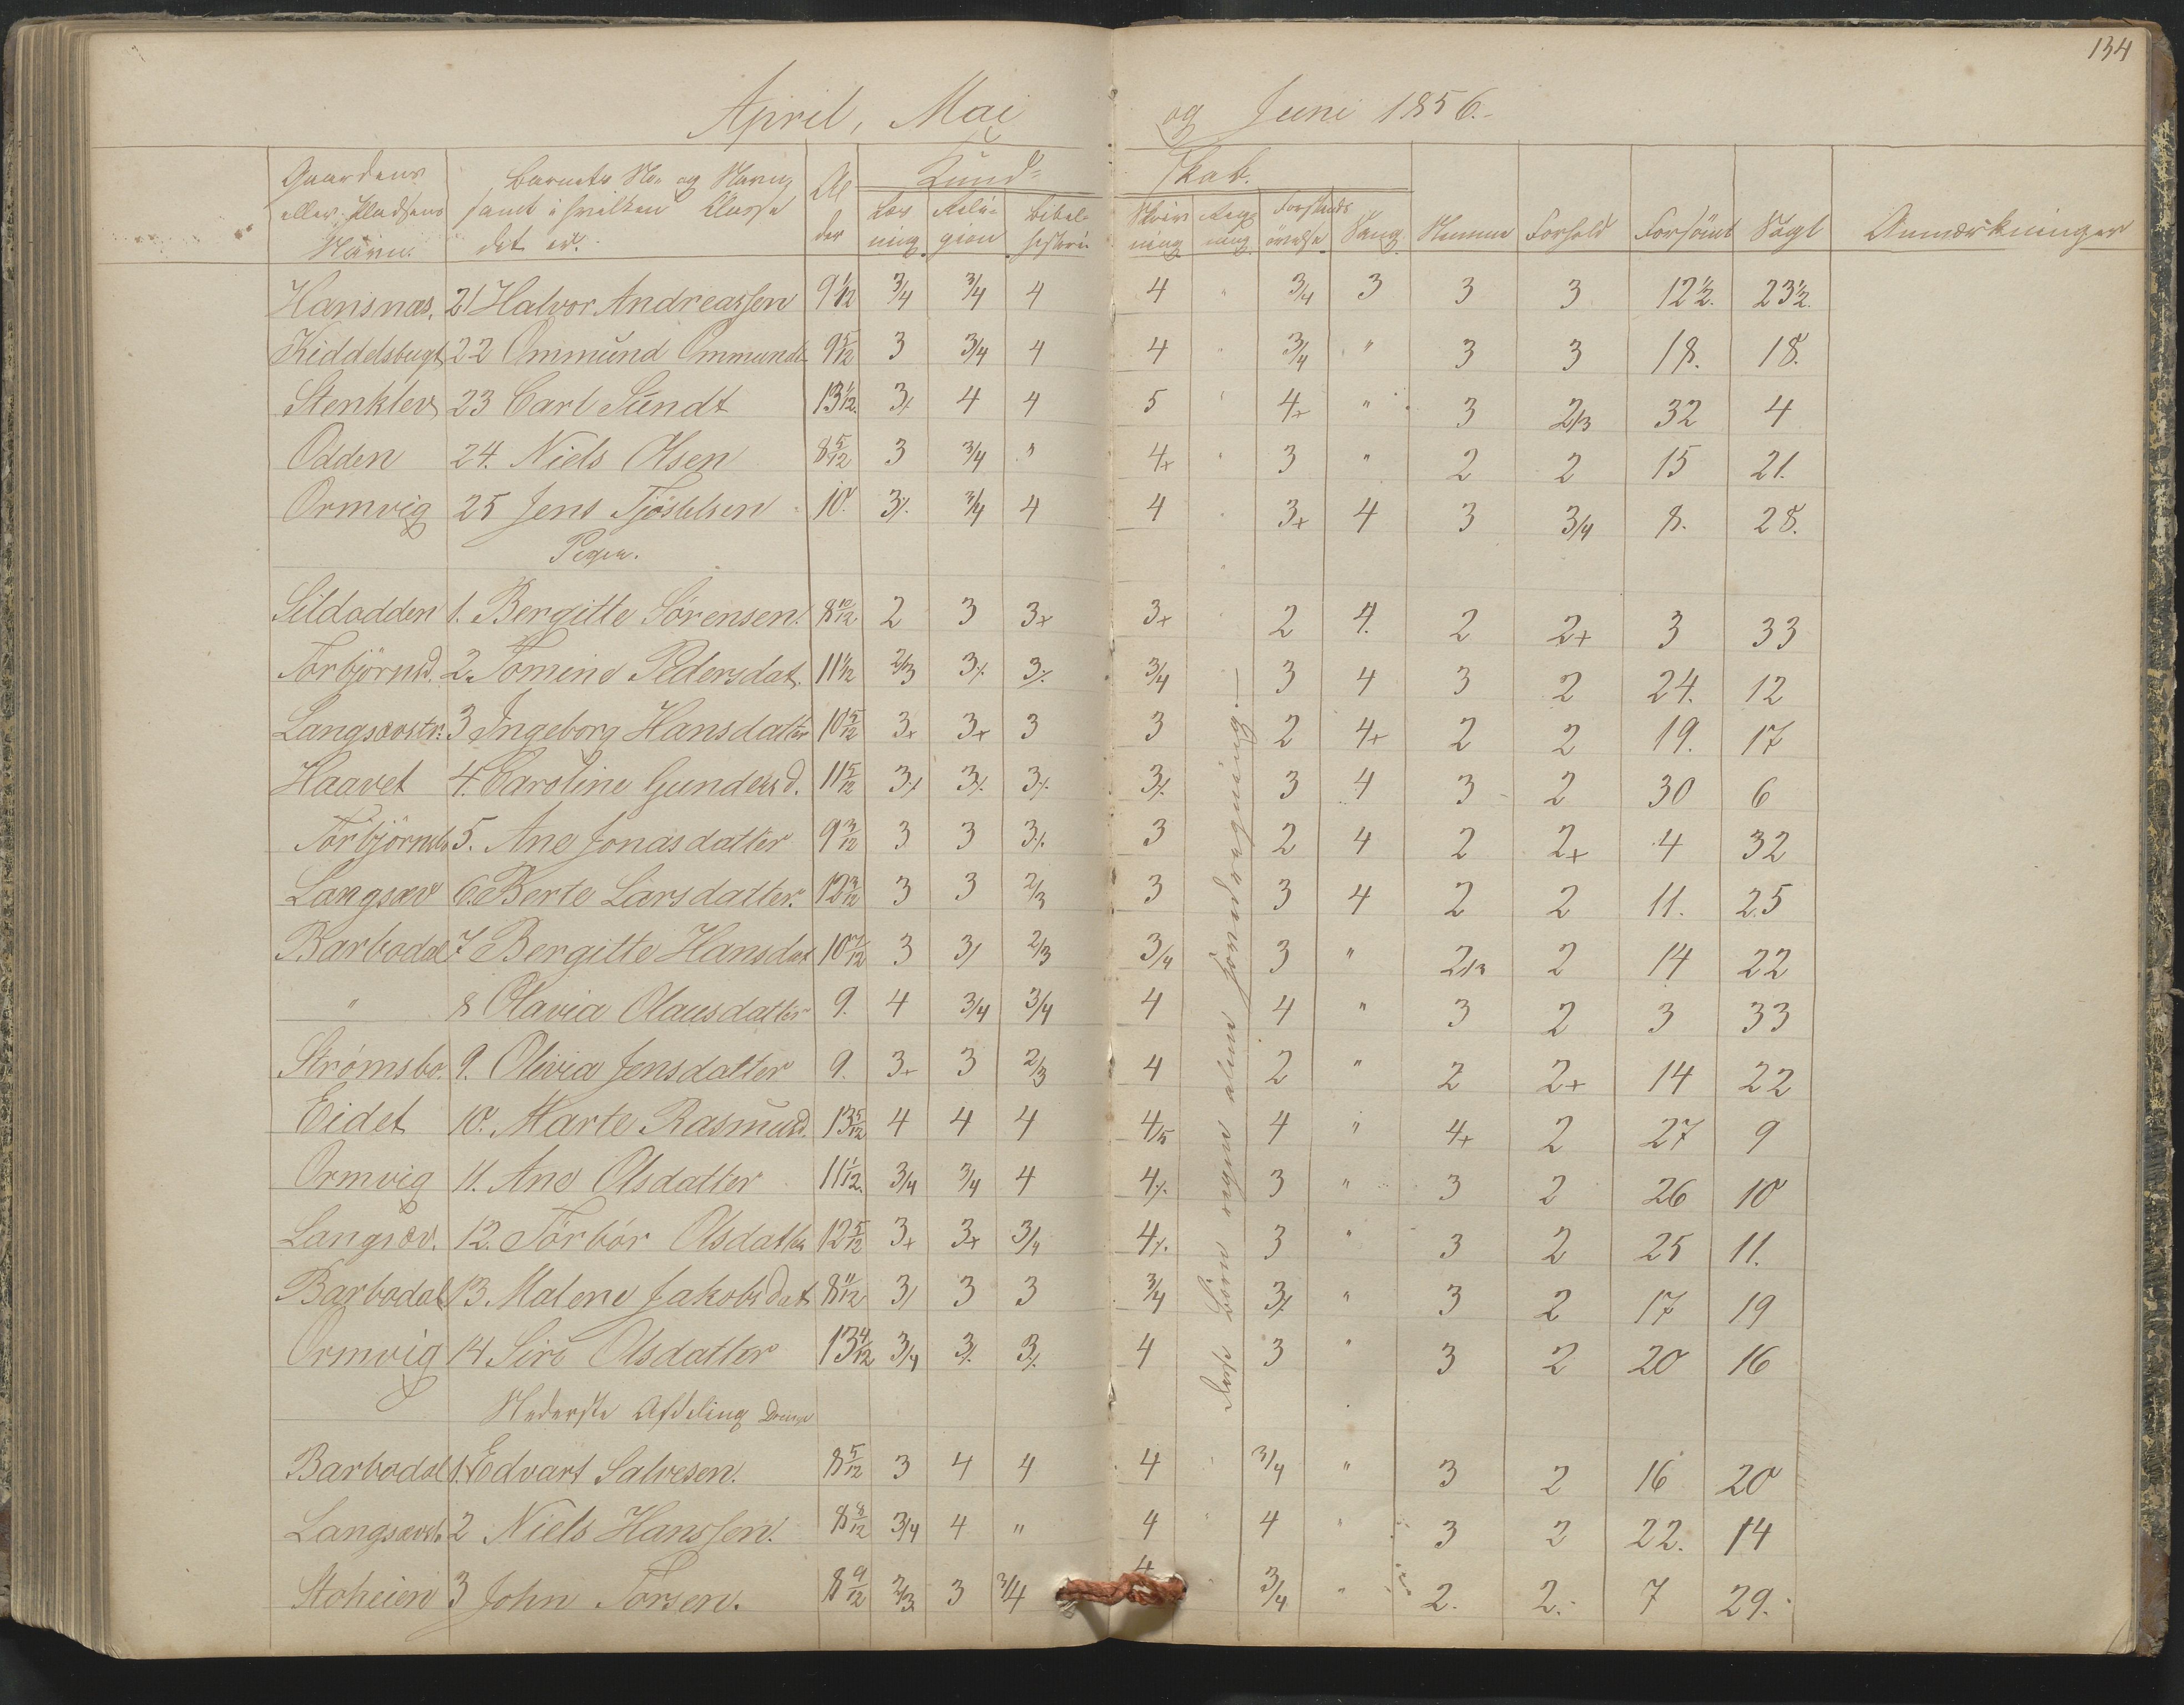 134
April, Mai og Juni 1856.
Gaardens eller Pladsens Navn. Barnets No. og Navn, samt i hvilken Klasse det er. Alder Kundskab. Læsning. Religion. Bibelhistorie Skrivning. Regning. Forstandsøvelse. Sang. Nemme Forhold Forsömt Sögt Anmærkninger
Hansnæs, 21 Halvor Andreassen 9 1/12 3/4 3/4 4 4 " 3/4 3 3 3 12½. 23½.
Kiddelsbugt 22 Ommund Ommunds 9 5/12 3 3/4 4 4 " 3/4 " 3 3 18. 18.
Stenklev 23 Carl Sundt 13 1/12. 3⁒ 4 4 5 " 4+ " 3 2/3 32 4
Odden 24. Niels Olsen 8 5/12 3 3/4 " 4+ " 3 " 2 2 15 21.
Ormvig 25 Jens Tjöstelsen 10. 3⁒ 3/4 4 4 " 3+ 4 3 3/4 8. 28.
Piger.
Sildodden 1. Bergitte Sørensen. 8 10/12 2 3 3+ 3+ 2 4. 2 2+ 3 33
Torbjörnsd. 2. Tomine Pedersdat. 11 1/12 2/3 3⁒ 3⁒ 3/4 3 4 3 2 24. 12
Langsævstr: 3 Ingeborg Hansdatter 10 5/12 3+ 3+ 3 3 2 4+ 2 2 19. 17
Haavet 4. Caroline Gundersd. 11 5/12 3⁒ 3⁒ 3⁒ 3⁒ 3 4 3 2 30 6
Torbjörnsb 5. Ane Jonasdatter 9 3/12 3 3 3⁒ 3 2 4 2 2+ 4 32
Langsæv 6. Berte Larsdatter. 12 3/12 3 3 2/3 3 3 4 2 2 11. 25
Barbodal 7 Bergitte Hansdat 10 7/12 3 3/ 2/3 3/4 3 " 2/3 2 14 22
" 8 Olavia Olausdatter 9. 4 3/4 3/4 4 4 " 3 2 3 33
Strømsbo. 9. Olivia Jensdatter 9. 3+ 3 2/3 4 2 " 2 2+ 14 22
Eidet 10. Marte Rasmusd. 13 5/12 4 4 4 4/5 4 " 4+ 2 27 9
Ormvig 11. Ane Olsdatter 11 1/12. 3/4 3/4 4 4⁒ 3 " 3 2 26 10
Langsæv. 12. Torbör Olsdatter 12 5/12 3+ 3+ 3/4 4⁒ 3 " 3 2 25 11.
Barbodal 13. Malene Jakobsdat 8 11/12 3/ 3 3 3/4 3⁒ " 3 2 17 19
Ormvig 14 Siri Olsdatter 13 4/12 3/4 3⁒ 3⁒ 4 3 " 3 2 20 16
Disse Börn regne alene Hovedregning.—
Nederste Afdeling Drenge
Barbodal 1. Edvart Salvesen. 8 5/12 3 4 4 4 " 3/4 " 3 2 16 20
Langsævstr 2 Niels Hanssen. 8 8/12 3/4 4 " 4 " 4 " 3 2 22. 14
Stoheien 3 John Torsen. 8 9/12 2/3 3 3/4 4 " 3/4 " 2. 2. 7 29.